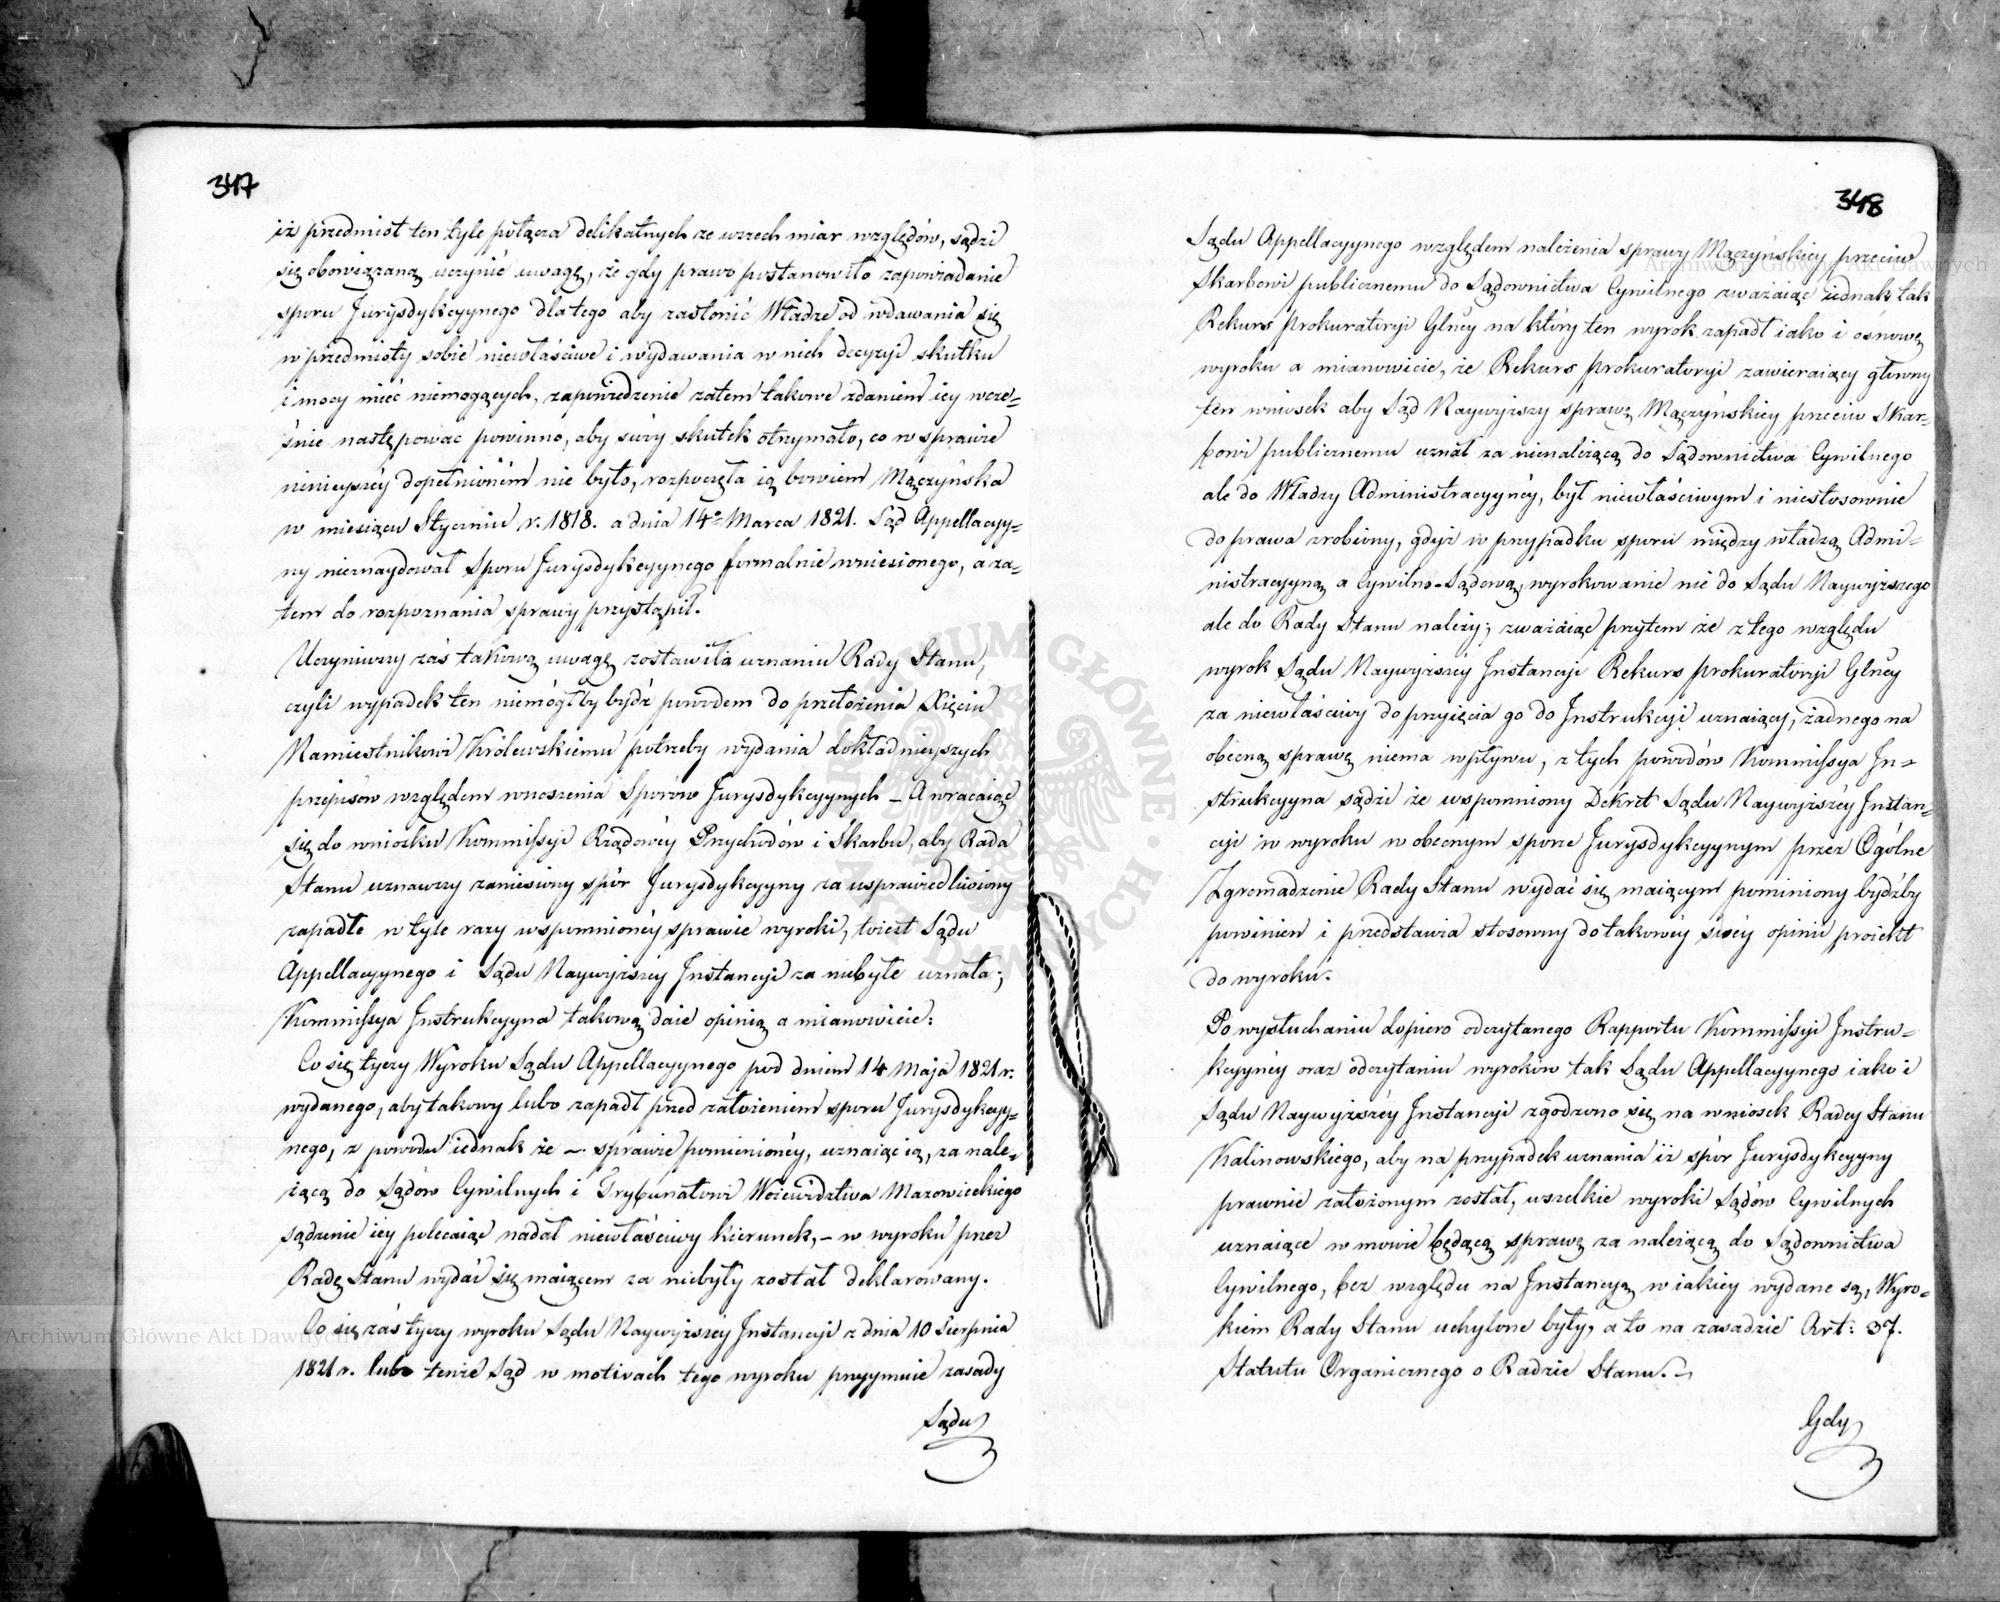 347
iż przedmiot ten tyle połącza delikatnych ze wszech miar względów, sądzi
się obowiązaną uczynić uwagę, że gdy prawo postanowiło zapowiadanie
sporu Jurysdykcyynego dla tego aby zasłonić Władze od wdawania się
w przedmioty sobie niewłaściwe i wydawania w nich decyzyi skutku
i mocy mieć niemogących, zapowiedzenie zatem takowe zdaniem iey wcze=
śnie następować powinno, aby swóy skutek otrzymało, co w sprawie
ninieyszéy dopełnioném nie było, rozpoczęła ią bowiem Mączyńska
w miesiącu Styczniu r. 1818. a dnia 14º Marca 1821. Sąd Appellacyy=
ny nieznaydował Sporu Jurysdykcyynego formalnie wniesionego, a za=
tem do rozpoznania sprawy przystąpił.
Uczyniwszy zaś takową uwagę zostawiła uznaniu Rady Stanu,
czyli wypadek ten niemógłby bydź powodem do przełożenia Xięciu
Namiestnikowi Królewskiemu potrzeby wydania dokładnieyszych
przepisów względem wnoszenia Sporów Jurysdykcyynych – A wracaiąc
się do wniosku Kommissyi Rządowéy Przychodów i Skarbu, aby Rada
Stanu uznawszy zaniesiony spór Jurysdykcyyny za usprawiedliwiony
zapadłe w tyle razy wspomnionéy sprawie wyroki, toiest Sądu
Appellacyynego i Sądu Naywyższéy Instancyi za niebyłe uznała;
Kommissya Instrukcyyna takową daie opinią a mianowicie:
Co się tyczy Wyroku Sądu Appellacyynego pod dniem 14 Maja 1821 r.
wydanego, aby takowy lubo zapadł przed założeniem sporu Jurysdykcyy=
nego, z powodu iednak że – sprawie pomienionéy, uznaiąc ią, za nale=
żącą do Sądów Cywilnych i Trybunałowi Woiewództwa Mazowieckiego
sądzenie iéy polecaiąc nadał niewłaściwy kierunek, – w wyroku przez
Radę Stanu wydać się maiącem za niebyły został deklarowany.
Co się zaś tyczy wyroku Sądu Naywyższéy Instancyi z dnia 10 Sierpnia
1821 r. lubo tenże Sąd w motivach tego wyroku przyymuie zasady
Sądu
348
Sądu Appellacyynego względem należenia sprawy Mączyńskiey przeciw
Skarbowi publicznemu do Sądownictwa Cywilnego zważaiąc iednak tak
Rekurs Prokuratoryi Glnéy na który ten wyrok zapadł iako i osnowę
wyroku a mianowicie, że Rekurs Prokuratoryi zawieraiący główny
ten wniosek aby Sąd Naywyższy sprawę Mączyńskiey przeciw Skar=
bowi publicznemu uznał za nienależącą do Sądownictwa Cywilnego
ale do Władzy Administracyynéy, był niewłaściwym i niestosownie
do prawa zrobiony, gdyż w przypadku sporu między władzą Admi=
nistracyyną a Cywilno-Sądową, wyrokowanie nie do Sądu Naywyższego
ale do Rady Stanu należy; zważaiąc przytem że z tego względu
wyrok Sądu Naywyższéy Instancyi Rekurs Prokuratoryi Glnéy
za niewłaściwy do przyięcia go do Instrukcyi uznaiący, żadnego na
obecną sprawę niema wpływu, z tych powodów Kommissya In=
strukcyyna sądzi że wspomniony Dekret Sądu Naywyższéy Instan=
cyi w wyroku w obecnym sporze Jurysdykcyynym przez Ogólne
Zgromadzenie Rady Stanu wydać się maiącym pominiony bydźby
powinien i przedstawia stosowny do takowéy swéy opinii proiekt
do wyroku.
Po wysłuchaniu dopiero odczytanego Rapportu Kommissyi Instru=
kcyynéy oraz odczytaniu wyroków tak Sądu Appellacyynego iako i
Sądu Naywyższéy Instancyi zgodzono się na wniosek Radcy Stanu
Kalinowskiego, aby na przypadek uznania iż spór Jurysdykcyyny
prawnie założonym został, wszelkie wyroki Sądów Cywilnych
uznaiące w mowie będącą sprawę za należącą do Sądownictwa
Cywilnego, bez względu na Instancyą w iakiey wydane są, Wyro=
kiem Rady Stanu uchylone były, a to na zasadzie Art: 37.
Statutu Organicznego o Radzie Stanu. –
Gdy
Archiwum Główne Akt Dawnych
Archiwum Główne Akt Dawnych
ARCHIWUM GŁÓWNE AKT DAWNYCH